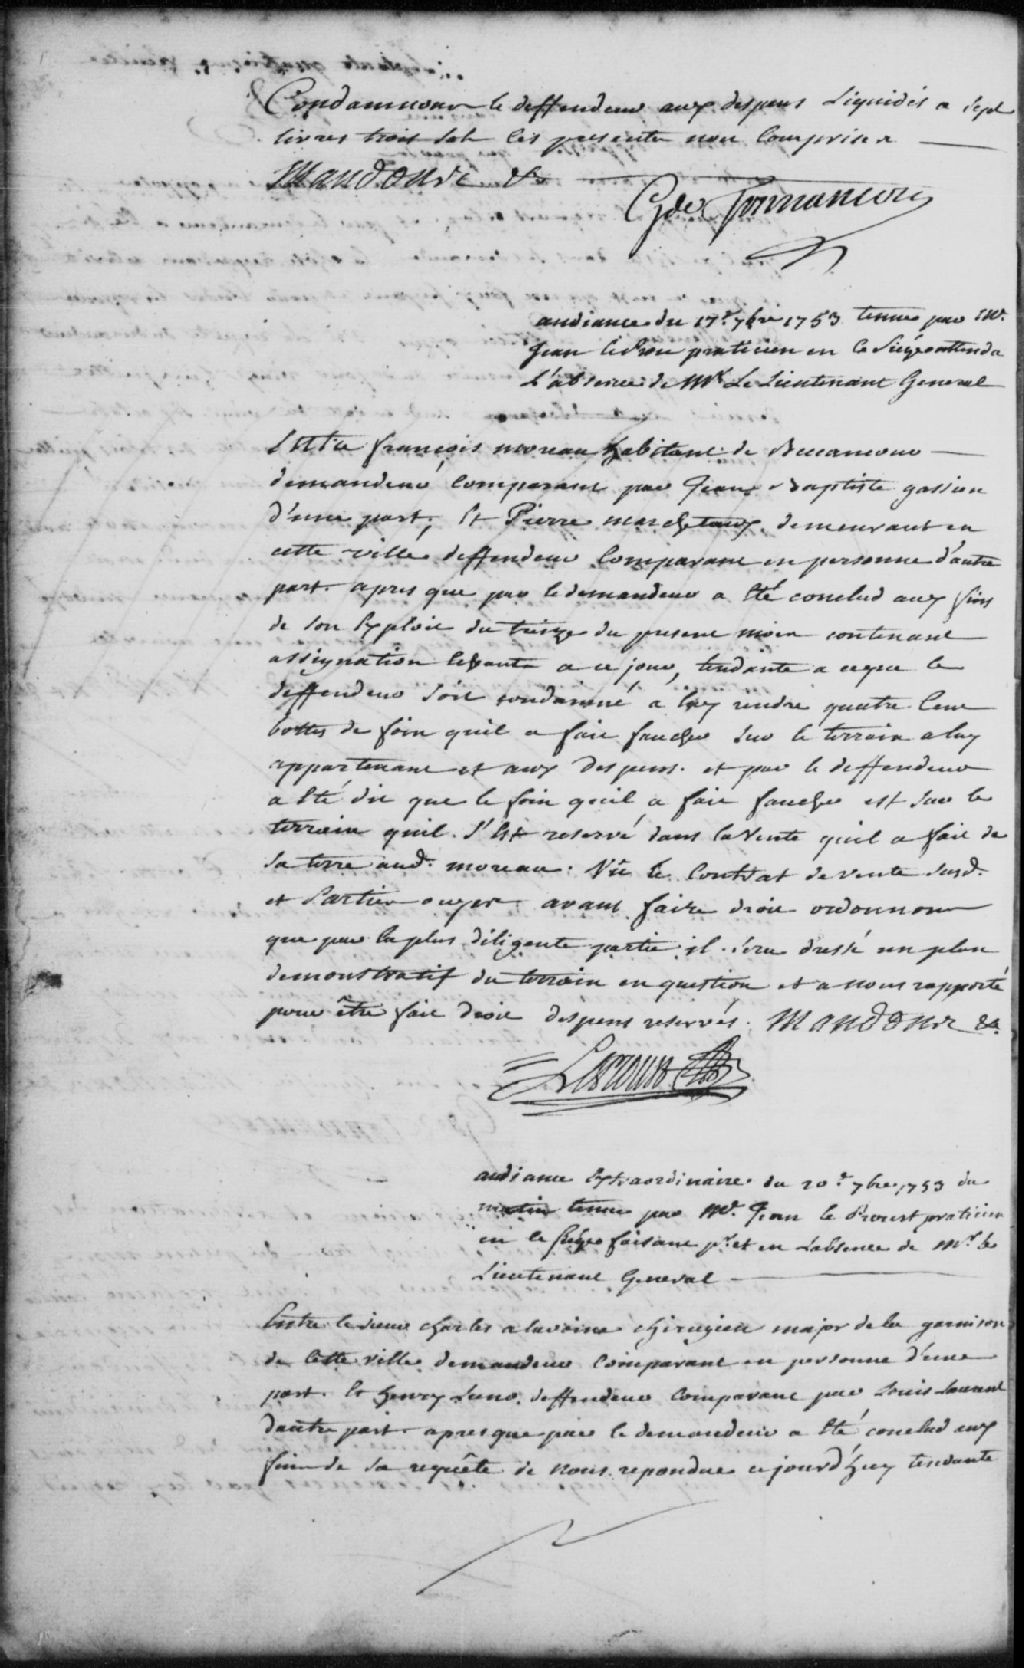 Condamnons le deffendeur aux despens Liquidés a Sept
livres trois sols les presente non Comprises
Mandons &c
Gdes Tonnancour
audiance du 17e 7bre 1753 tenue par Mr.
Jean leProu praticien en Ce Siege attendu
L'absence de Mr Le Lieutenant General
Entre françois moreau habitant de
demandeur Comparant par Jean Baptiste gassien
d'une part, Et Pierre marchetaux demeurant en
cette ville deffendeur Comparant en personne d'autre
part. apres que par le demandeur a Eté conclud aux fins
de son Exploit du treize du present mois contenant
assignation Echeante a ce jour, tendante a ceque le
deffendeur soit condamné a luy rendre quatre Cent
bottes de foin quil a fait faucher sur le terrain a luy
appartenant et aux despens. et par le deffendeur
a Eté dit que le foin quil a fait faucher est sur le
terrain quil S'Est reservé dans la Vente quil a fait de
Sa terre aud. moreau. Vû Le Contrat de vente Susd.
et Parties ouyes avant faire droit ordonnons
que par la plus diligente partie il Sera dressé un plan
demonstratif du terrain en question et a nous rapporté
pour être fait droit despens reservés. Mandons &c.
Leproust
audiance Extraordinaire du 20e 7bre 1753 du
matin tenue par Mr. Jean le Proust praticien
en le siege faisant pr. et en Labsence de Mr. le
Lieutenant General
Entre le sieur charles alavoine chirugien major de la garnison
de Cette ville demandeur Comparant en personne d'une
part. Et henry deffendeur Comparant par Louis Laurent
dautre part. apres que par le demandeur a Eté conclud aux
fins de Sa requête de Nous repondue cejourd'huy tendante